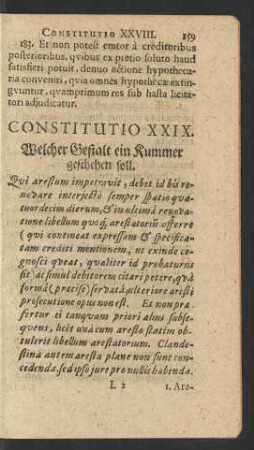 CONSTITUTIO XXVIII. 159
183. Et non potest emtor à creditoribus
posterioribus, qvibus ex pretio soluto haud
satisfieri potuit, denuo actione hypotheca-
ria conveniri, qvia omnes hypothecæ extin-
gvuntur, qvamprimum res sub hasta licita-
tori adjudicatur.
CONSTITUTIO XXIX.
Welcher Gestalt ein Kummer
geschehen soll.
Qvi arestum impetravit, debet id bis re-
novare interjecto semper spatio qva-
tuordecim dierum, & in ultima renova-
tione libellum qvoq; arestatoriũ offerre
(qvi contineat expressam & specifica-
tam crediti mentionem, ut exinde co-
gnosci qveat, qvaliter id probaturus
sit) ac simul debitorem citari petere, qvâ
formâ (precisè) servatâ ulteriore aresti
prosecutione opus non est. Et non præ-
fertur ei tanqvam priori alius subse-
qvens, licèt unà cum aresto statim ob-
tulerit libellum arestatorium. Clande-
stina autem aresta plane non sunt con-
cedenda, sed ipso jure pro nullis habenda.
L 2 1. Are-